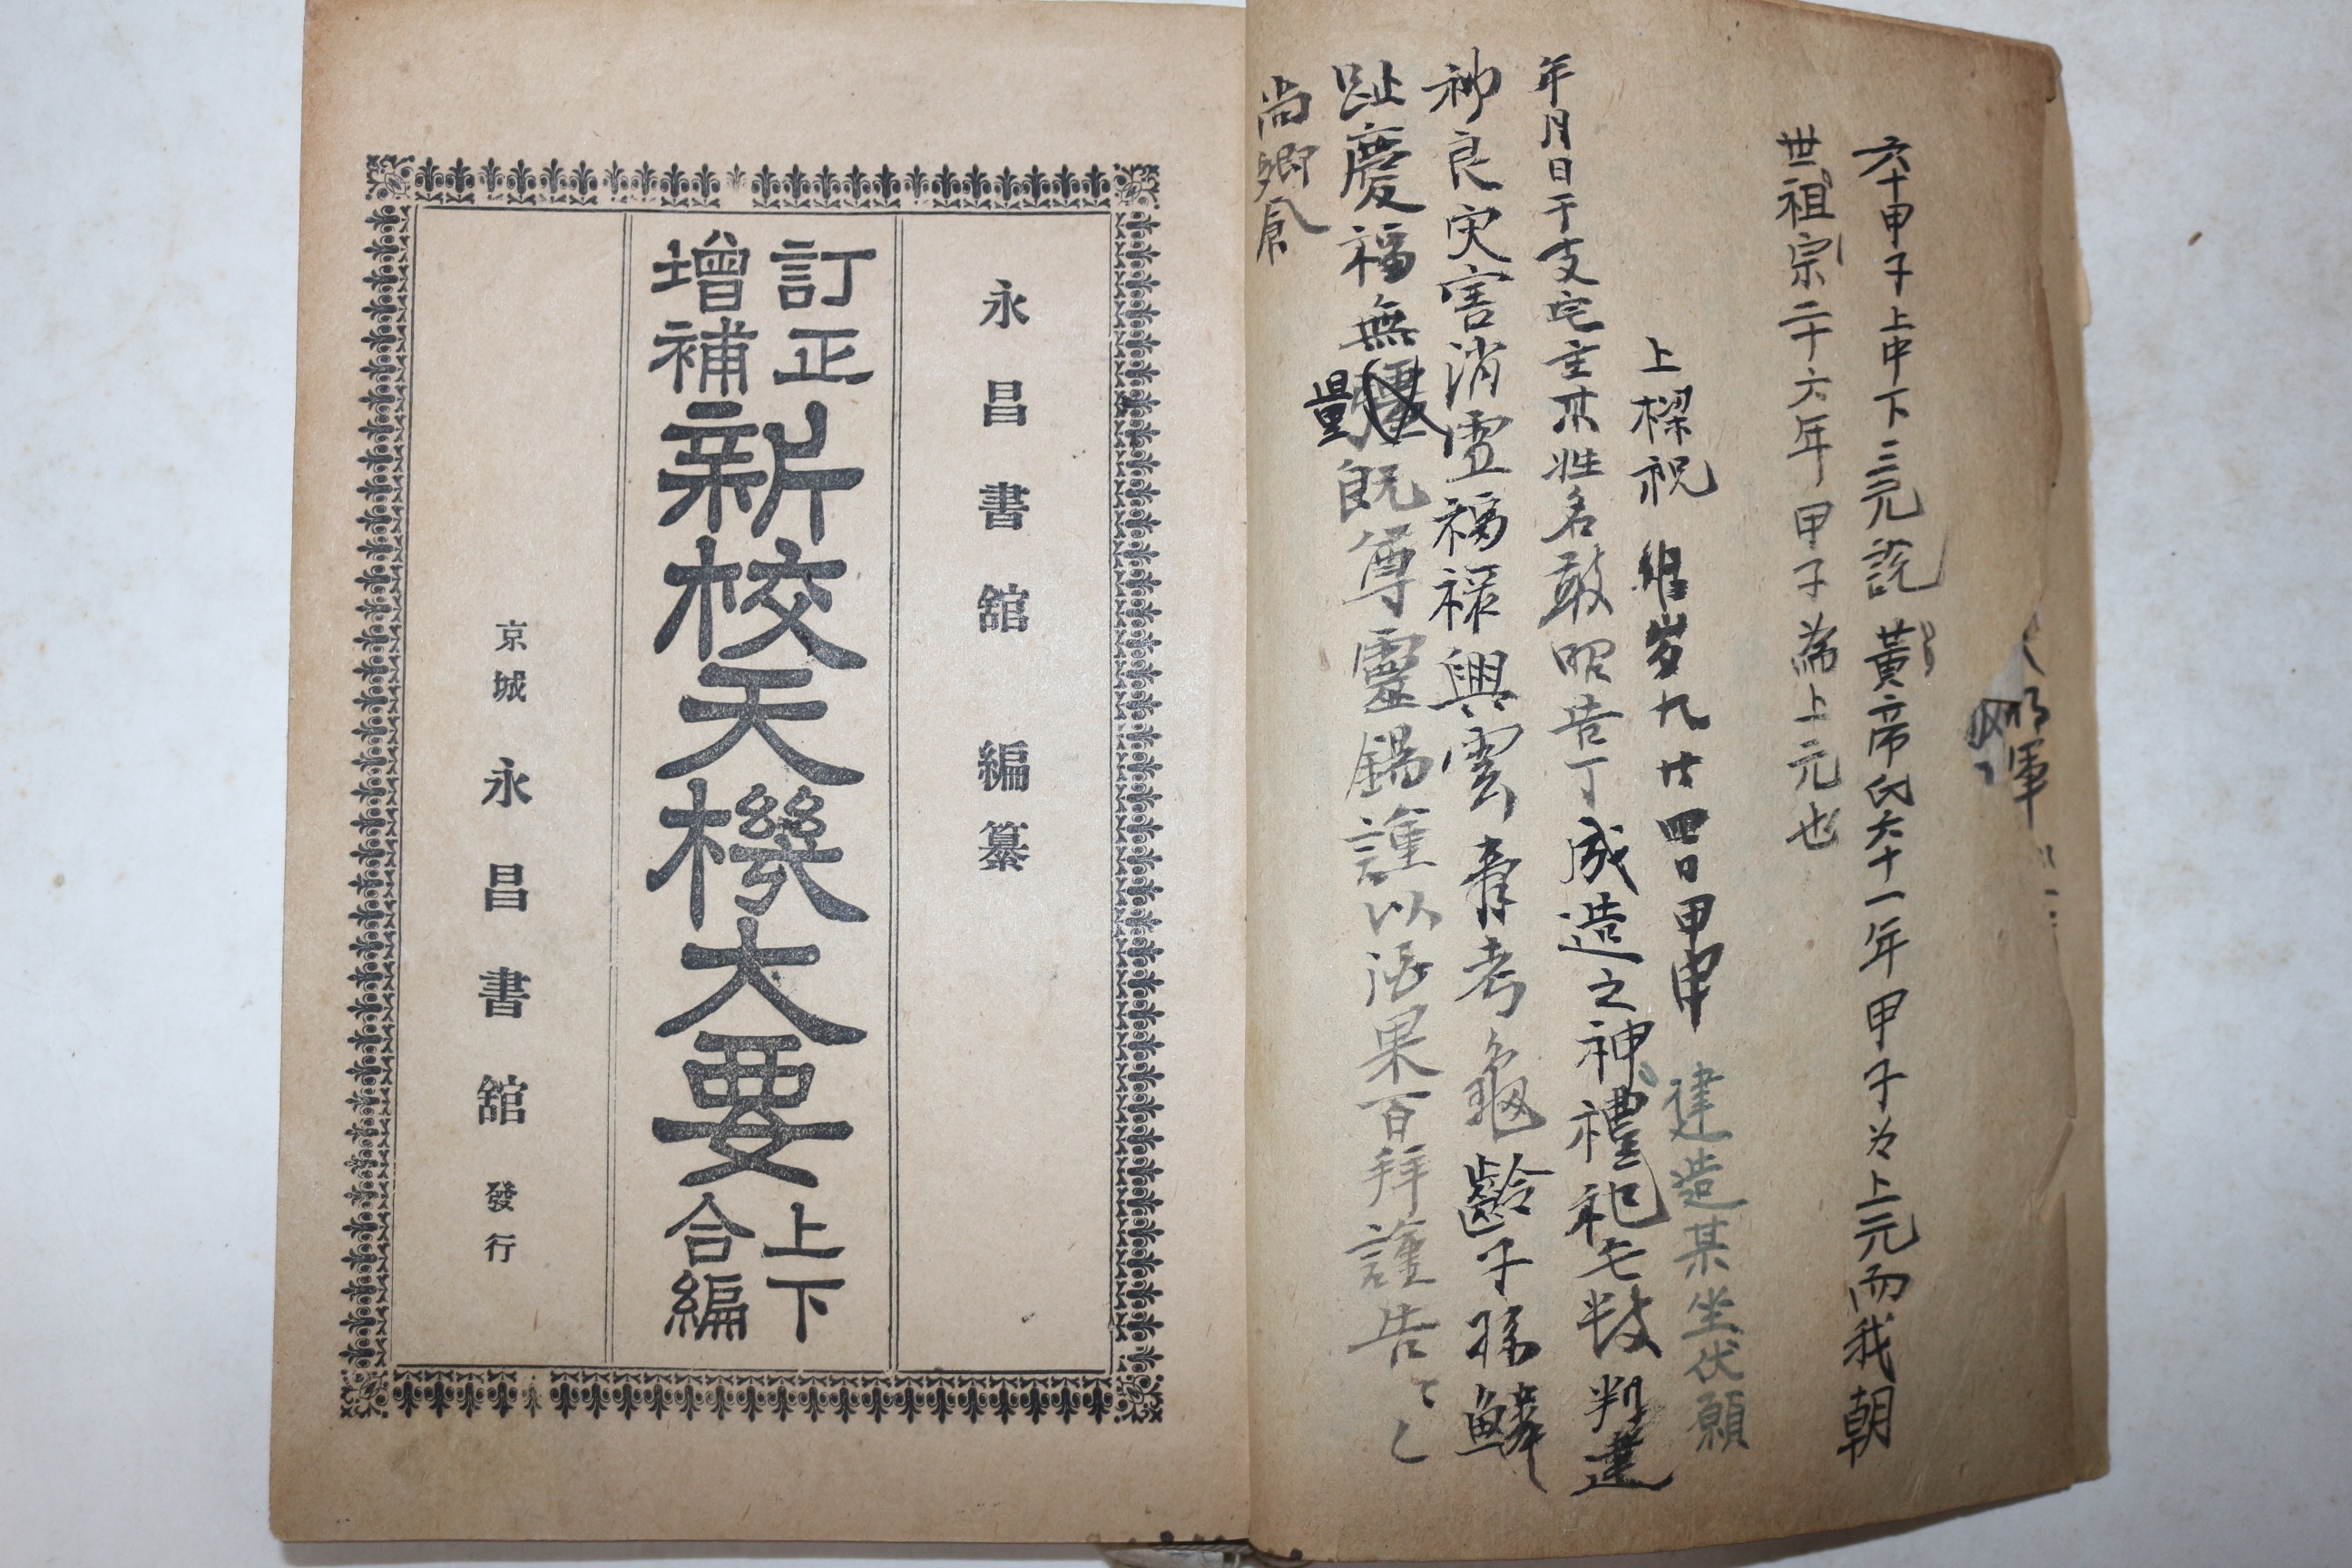 六十甲子上中下三元説 黃帝氏六十一年甲子為上元而我朝
世祖宗二十六年甲子為上元也
上樑祝 維歲九廿四日甲申 建造某坐伏願
年月日干支宅主某姓名敢昭告丁成造之神禮祀
神良灾害消 福禄興雲 考龜齡子孫鱗
趾慶福無量 既尊靈錫謹以酒果百拜謹告
尚鄉
永昌書舘 編纂
訂正
增補
新校天機大要
上下
合編
京城 永昌書舘 發行